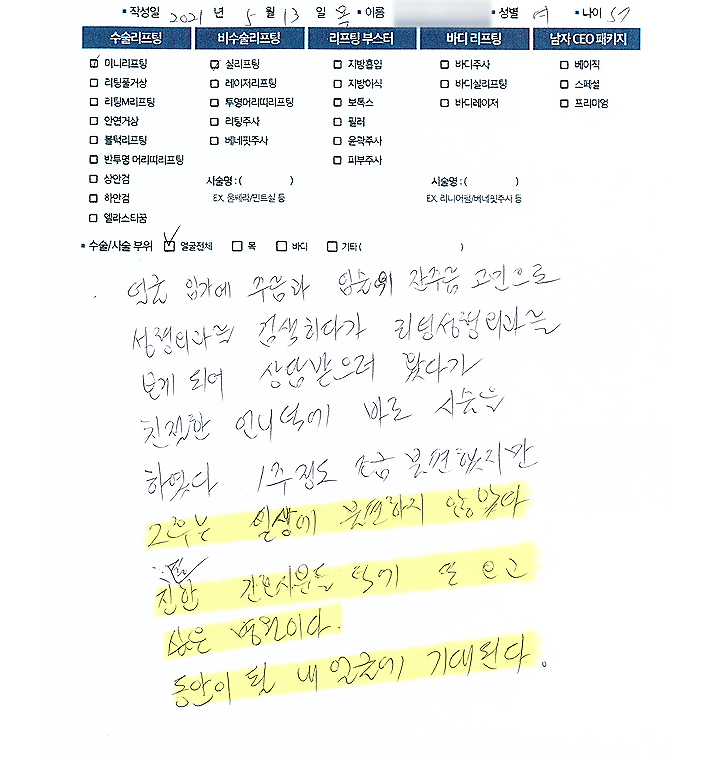 ▪작성일 2021 년 5 월 13 일 목 ▪이름 ▪성별 여 ▪나이 57
수술리프팅 비수술리프팅 리프팅 부스터 바디 리프팅 남자 CEO 패키지
미니리프팅 실리프팅 지방흡입 바디주사 베이직
리팅풀거상 레이저리프팅 지방이식 바디실리프팅 스페셜
리팅M리프팅 투명머리띠리프팅 보톡스 바디레이저 프리미엄
안면거상 리팅주사 필러
볼턱리프팅 베네핏주사 윤곽주사
반투명 머리띠리프팅 피부주사
상안검 시술명 : ( ) 시술명 : ( )
하안검 EX. 울쎄라/민트실 등 EX. 리니어펌/베네핏주사 등
엘라스티꿈
▪수술/시술 부위 얼굴전체 목 바디 기타( )
얼굴 입가에 주름과 입술위 잔주름 고민으로
성형외과를 검색하다가 리팅성형외과를
보게 되어 상담받으러 왔다가
친절한 언니덕에 바로 시술을
하였다 1주정도 조금 불편했지만
2주후는 일상에 불편하지 않았다
친절한 간호사분들 덕에 또 오고
싶은 병원이다.
동안이 될 내 얼굴에 기대된다.